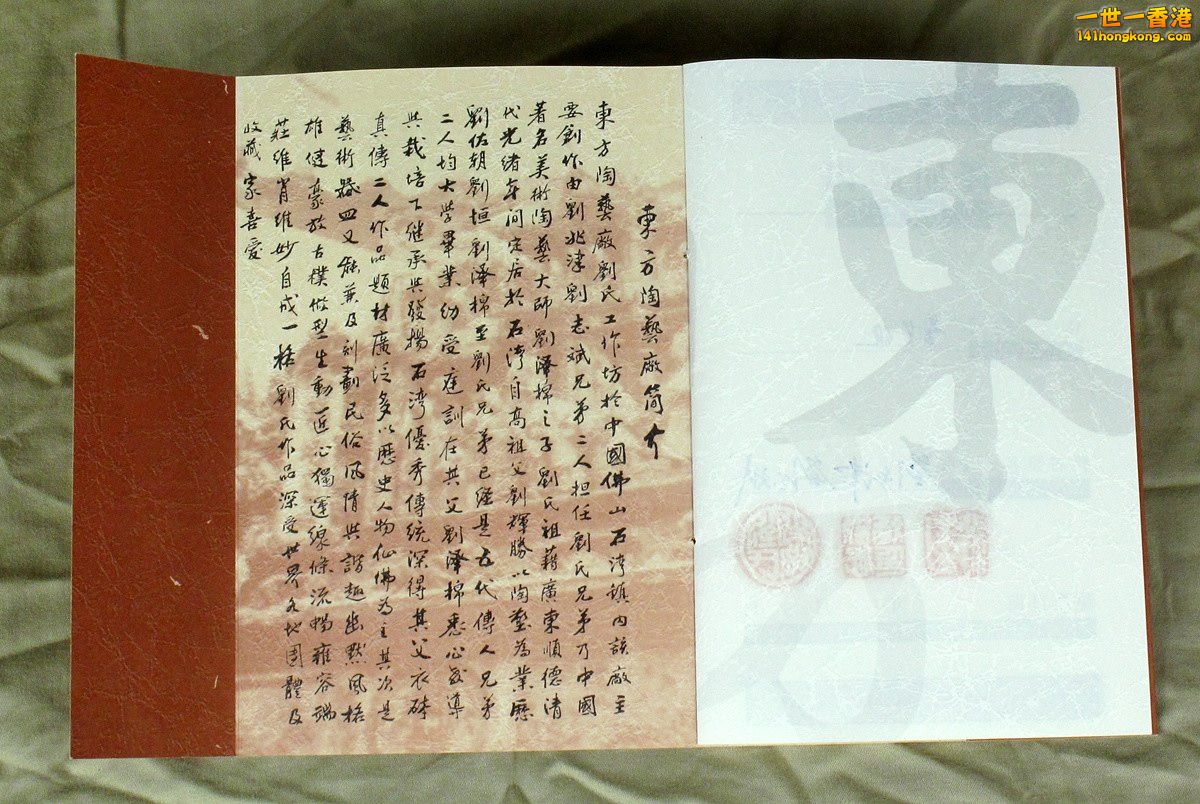 一世一香港
141hongkong.com
東方陶藝廠簡介
東方陶藝廠劉氏工作坊於中國佛山石湾鎮内該廠主
要創作由劉兆津劉志斌兄弟二人担任劉氏兄弟乃中國
著名美術陶藝大師劉澤棉之子劉氏祖藉廣東順德清
代光緒年间定居於石湾自高祖父劉輝勝以陶藝為業歷
劉佐朝劉垣劉澤棉至劉氏兄弟已經是五代傳人兄弟
二人均大学畢業幼受庭訓在其父劉澤棉悉心教導
與栽培下继承與發揚石湾優秀傳統深得其父衣砵
真傳二人作品題材廣泛多以歷史人物仙佛為主其次是
藝術器皿又能兼及刻劃民俗風情其諧趣幽默風格
雄健豪放古樸做型生動匠心獨運線條流暢雍容端
莊維肖維妙自成一格劉氏作品深受世界各地團體及
收藏家喜爱
東方